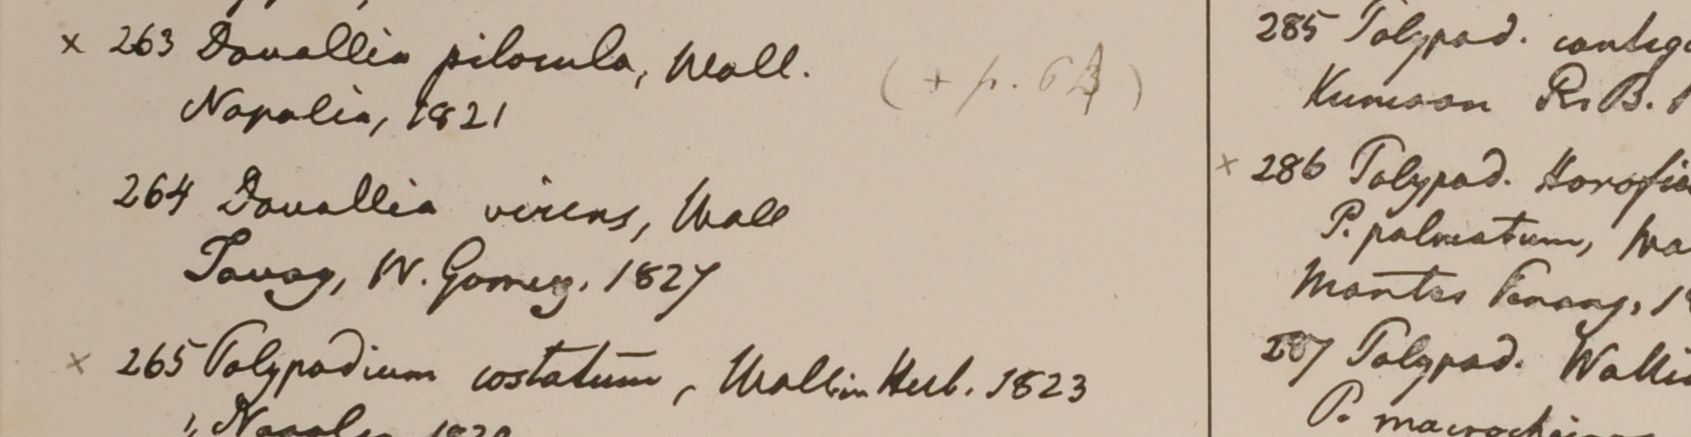 x 263 Davallia pilosula, Wall. (+ p. 64)
Napalia, 1821
264 Davallia virens, Wall
Tavoy, W. Gomez. 1827
x 265 Polypodium costatum, Wall. in Herb. 1823
285 Polypod. contig
Kumaon R. B.
x 286 Polypod. Horsfie
P. palmatum, Wa
Montes Penang, 1
287 Polypod. Wallic
P.